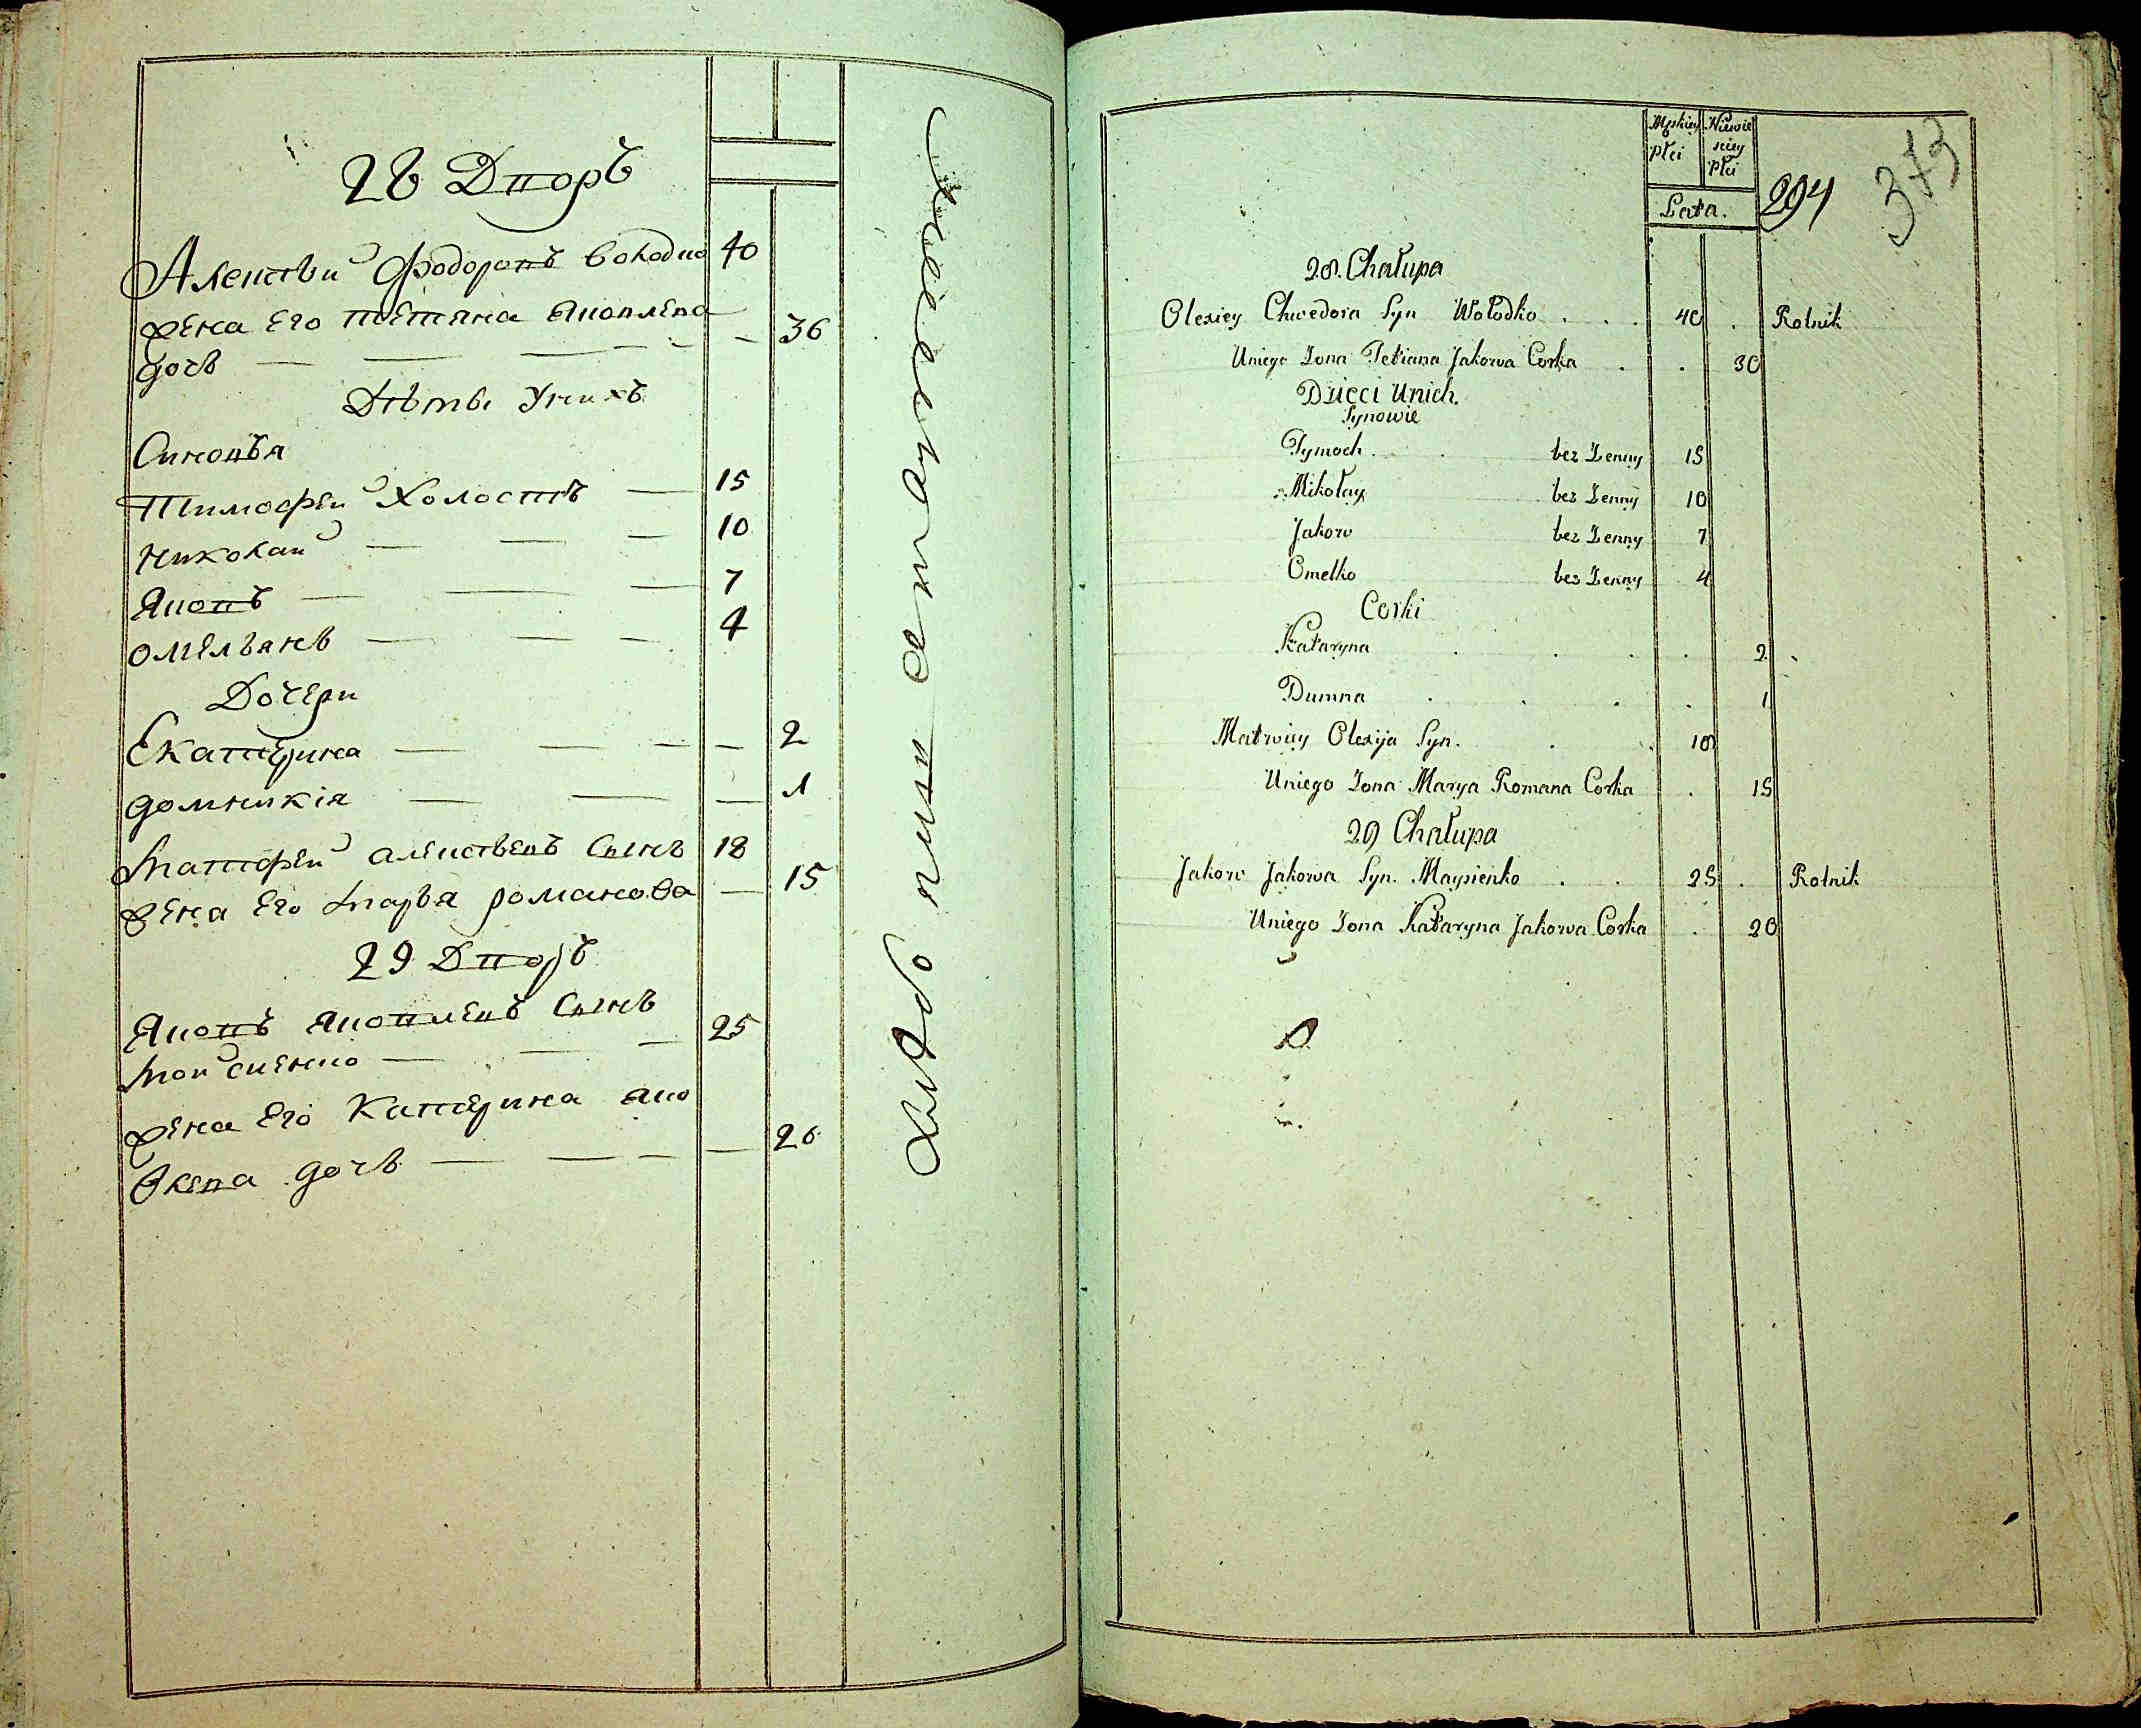 28 Дворъ
Алексѣй Федоровъ Володко 40
жена его Тетяна Яковлева 36
дочь
Дѣти у нихъ
Синовья
Тимофей Холостъ 15
Николай 10
Яковъ 7
Омельянъ 4
Дочери
Екатерина 2
Домникія 1
Матфей Алексѣевъ сынъ 18
жена его Марья Романова 15
29 Дворъ
Яковъ Яковлевъ сынъ 25
Мойсиенко
жена его Катерина Яко
влева дочь 26
хлѣбопашествуетъ
Męskiey Płci
Niewieściey Płci
Lata.
294
373
28. Chałupa
Olexiey Chwedora Syn Wołodko 40 Rolnik
Uniego Zona Tetiana Jakowa Corka 36
Dzieci Unich.
Synowie
Tymoch bez Zenny 15
Mikołay bez Zenny 10
Jakow bez Zenny 7
Omelko bez Zenny 4
Corki
Kataryna 2
Dumna 1
Matwiy Olexija Syn. 18
Uniego Zona Marya Romana Corka 15
29 Chałupa
Jakow Jakowa Syn. Maysienko 25 Rolnik
Uniego Zona Kataryna Jakowa Corka 26